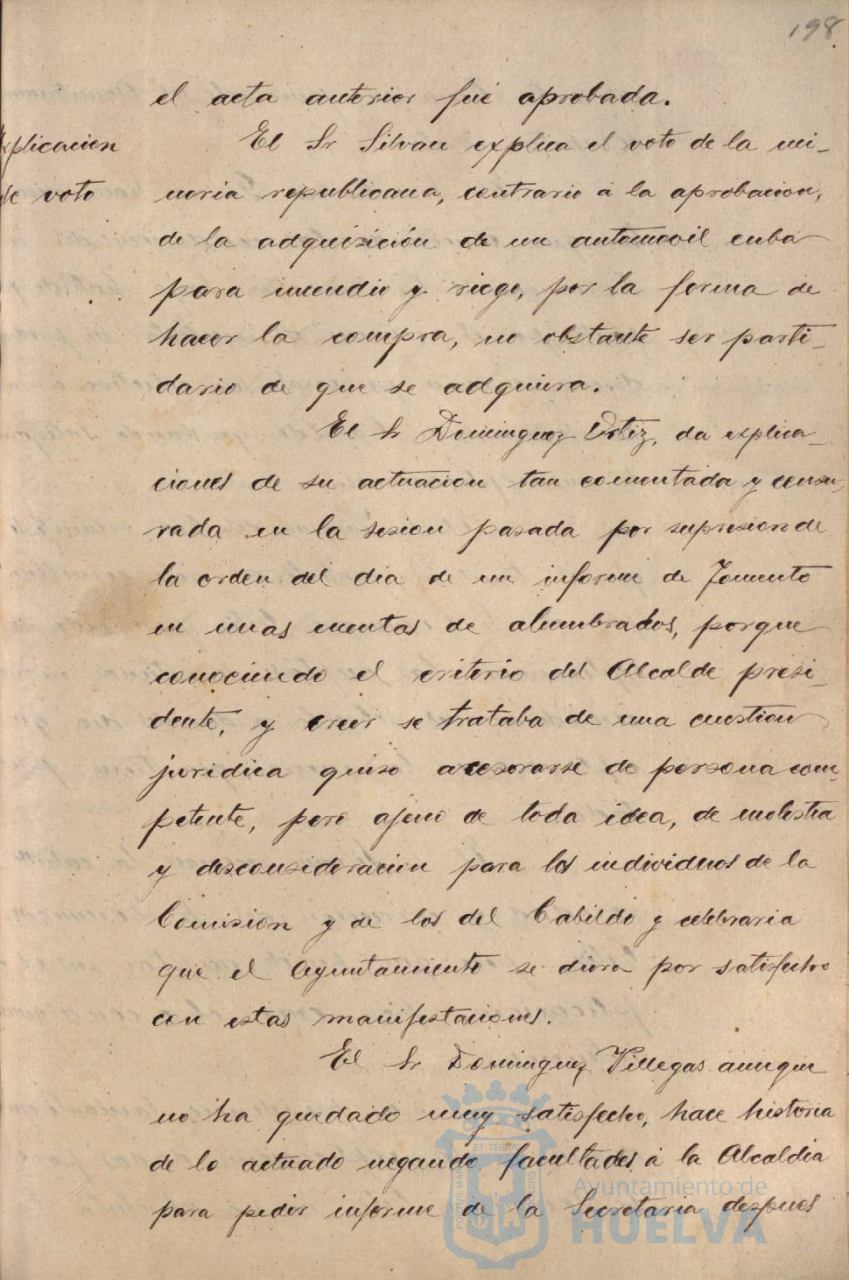 198
el acta anterior fué aprobada.
Explicacion
de voto
El Sr Silvan explica el voto de la mi-
noria republicana, contrario á la aprobacion,
de la adquisición de un automovil cuba
para incendio y riego, por la forma de
hacer la compra, no obstante ser parti-
dario de que se adquiera.
El Sr Dominguez Ortiz, da explica-
ciones de su actuacion tan comentada y censu-
rada en la sesion pasada por supresion de
la orden del dia de un informe de Fomento
en unas cuentas de alumbrados, porque
conociendo el criterio del Alcalde presi-
dente, y creer se trataba de una cuestion
juridica quiso acesorarse de persona com-
petente, pero ajeno de toda idea, de molestia
y desconsideracion para los individuos de la
Comision y de los del Cabildo y celebraria
que el Ayuntamiento se diera por satisfecho
con estas manifestaciones.
El Sr Dominguez Villegas aunque
no ha quedado muy satisfecho, hace historia
de lo actuado negando facultades á la Alcaldia
para pedir informe de la Secretaria despues
Ayuntamiento de
HUELVA